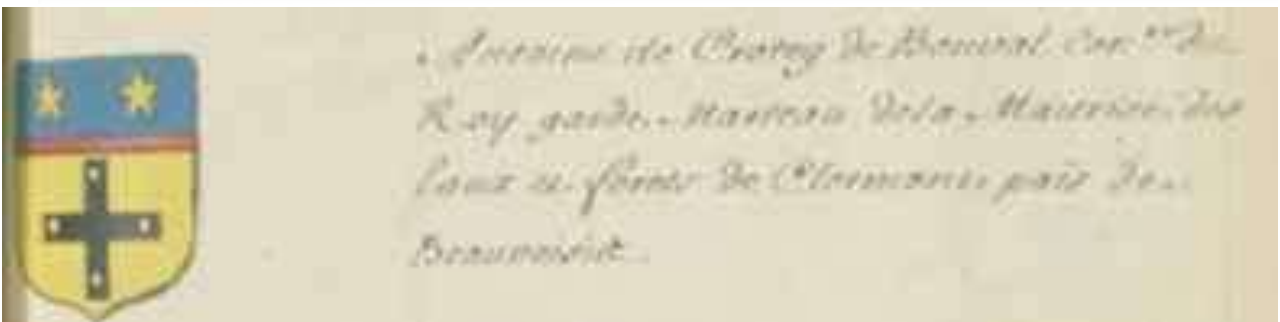 Antoine de Crotoy de Bonval Con.er du
Roy garde-Marteau de la Maitrise des
Eaux et forets de Clermont, païs de
Beauvoisis.